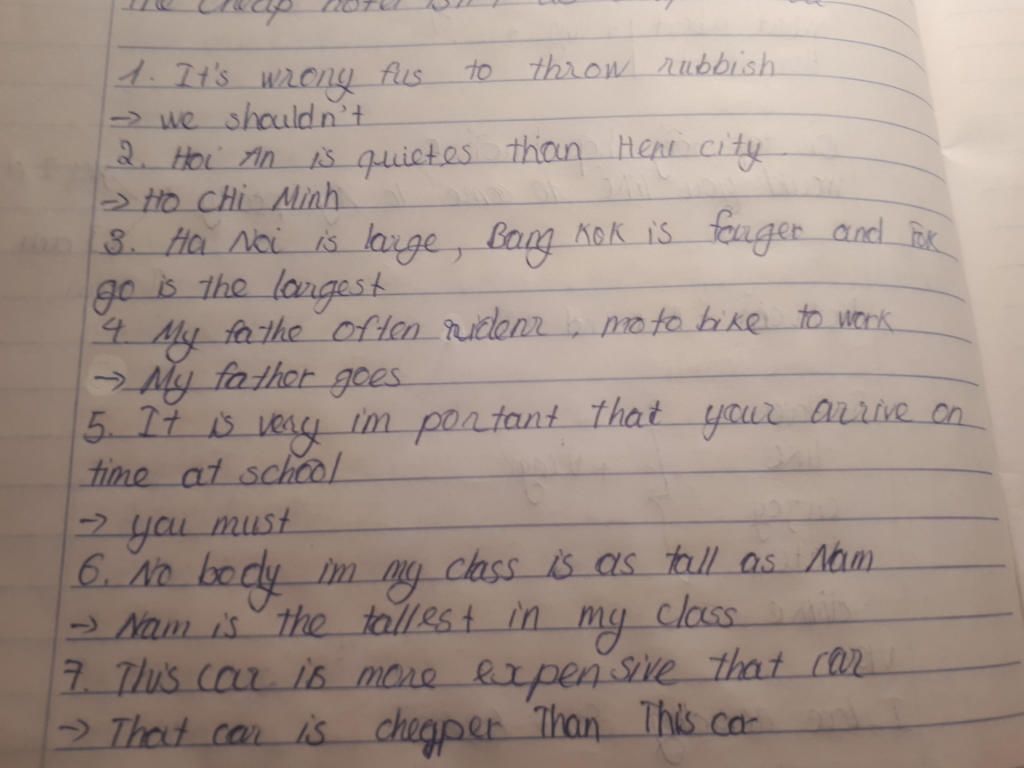 The cheap hotel isn't as
1. It's wrong fus to throw rubbish
→ we shouldn't
2. Hoi An is quietes than Heni city
→ Ho CHi Minh
3. Ha Noi is large, Bang KOK is and
go is the largest
4. My fathe often moto bike to work
→ My father goes
5. It is very im portant that your arrive on
time at school
→ you must
6. No body im my class is as tall as Nam
→ Nam is the tallest in my class
7. This car is more expensive that car
→ That car is chegper Than This ca